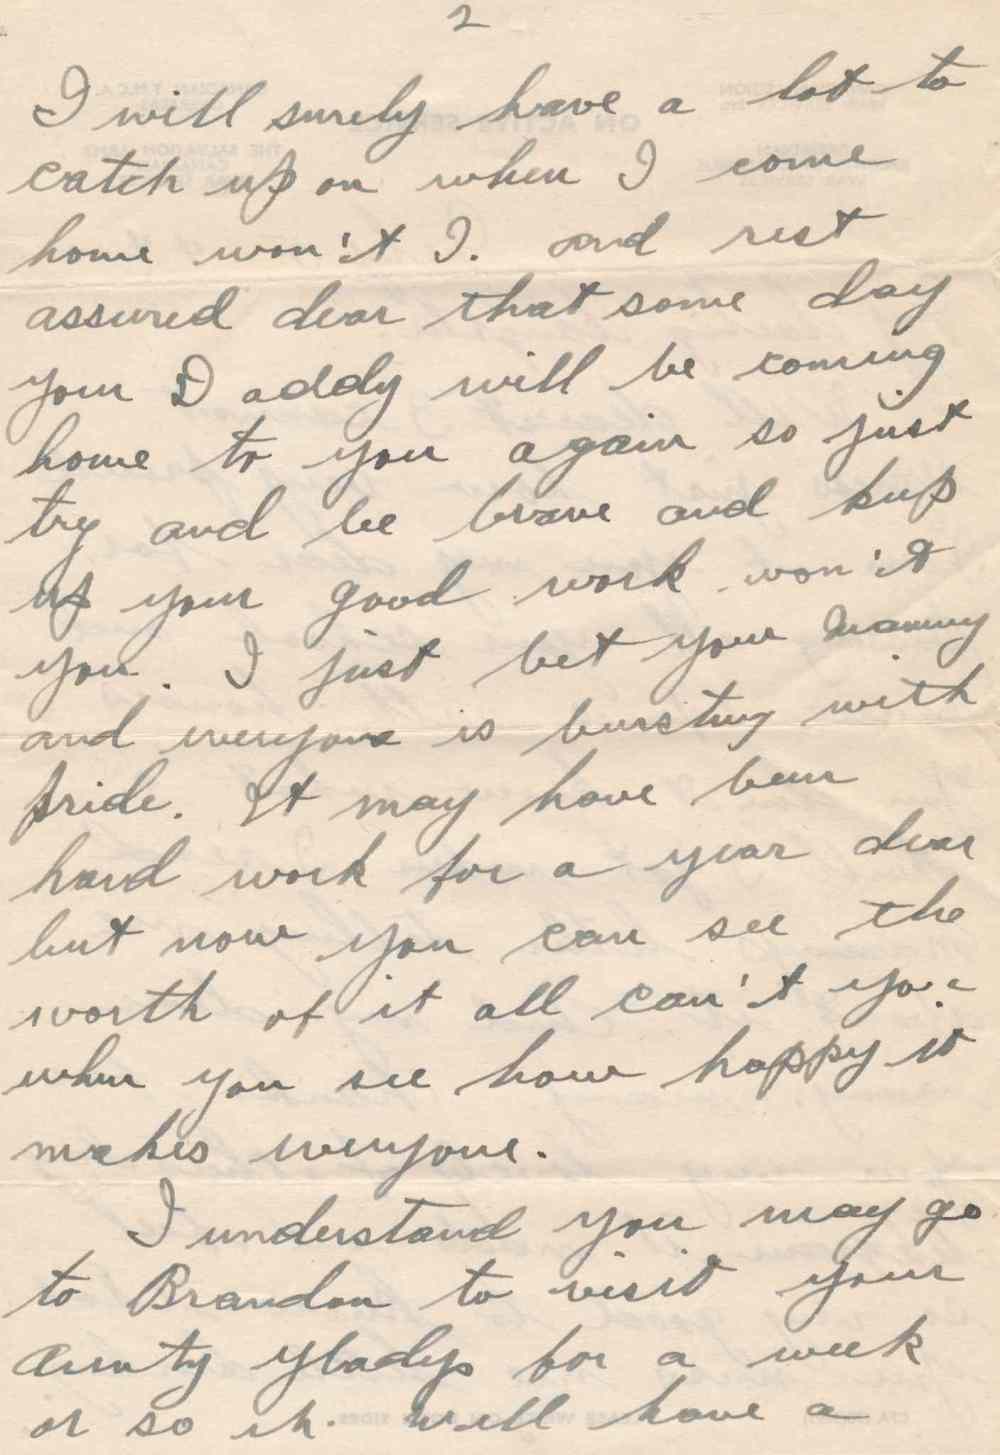 2
I will surely have a lot to
catch up on when I come
home won't I. and rest
assured dear that some day
your Daddy will be coming
home to you again so just
try and be brave and keep
up your good work won't
you. I just bet your Mammy
and everyone is bursting with
pride. It may have been
hard work for a year dear
but now you can see the
worth of it all can't you
when you see how happy it
makes everyone.
I understand you may go
to Brandon to visit your
Aunty Gladys for a week
or so eh. Will have a
ON ACTIVE SERVICE